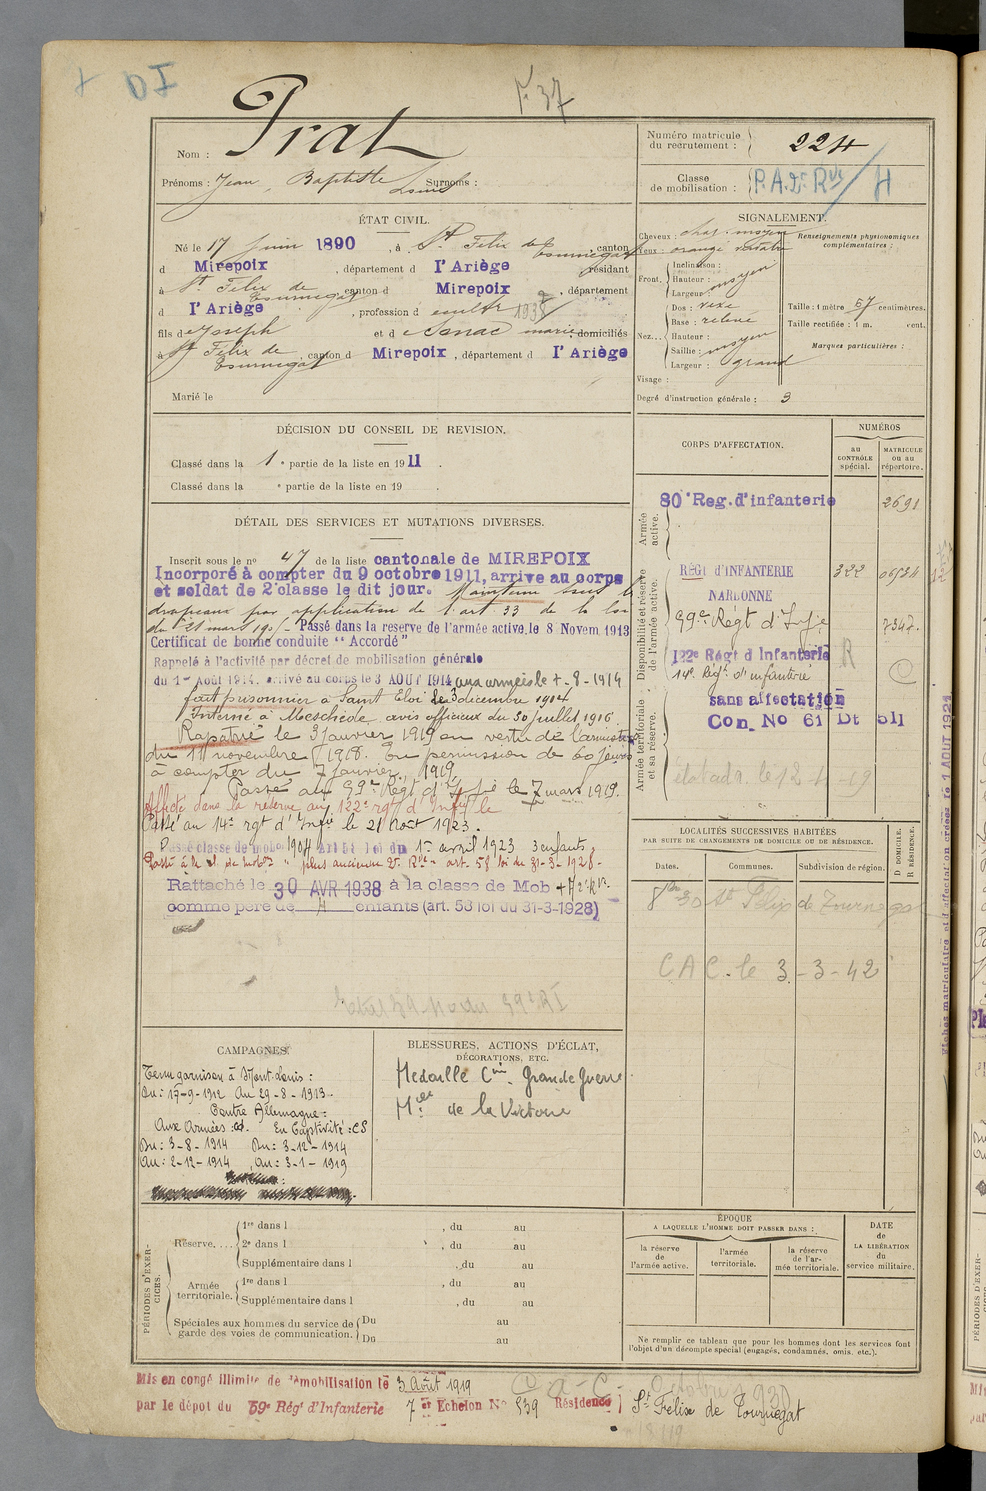 DI
F 37
Nom : Prat
Prénoms : Jean, Baptiste Louis Surnoms :
Numéro matricule du recrutement : 224
Classe de mobilisation : P.A. 2e Rve / 4
ÉTAT CIVIL.
Né le 17 Juin 1890, à St Felix de Tournegat, canton
d Mirepoix, département d l'Ariège résidant
à St Felix de Tournegat, canton d Mirepoix, département
d l'Ariège, profession de cultr 1938
fils de Joseph et de Senac marie domiciliés
à St Felix de Tournegat, canton d Mirepoix, département d l'Ariège
Marié le
SIGNALEMENT.
Cheveux : chat. moyen
Yeux : orangé verdatre
Front. Inclinaison :
Hauteur : moyen
Largeur :
Nez... Dos : vexe
Base : relevé
Hauteur :
Saillie : moyen
Largeur : grand
Visage :
Renseignements physionomiques complémentaires :
Taille : 1 mètre 67 centimètres.
Taille rectifiée : 1 m. cent.
Marques particulières :
Degré d'instruction générale : 3
DÉCISION DU CONSEIL DE REVISION.
Classé dans la 1e partie de la liste en 1911.
Classé dans la e partie de la liste en 19
DÉTAIL DES SERVICES ET MUTATIONS DIVERSES.
Inscrit sous le no 47 de la liste cantonale de MIREPOIX
Incorporé à compter du 9 octobre 1911, arrive au corps
et soldat de 2e classe le dit jour. Maintenu sous les
drapeaux par application de l'art. 33 de la loi
du 21 mars 1905. Passé dans la reserve de l'armée active, le 8 Novem. 1913
Certificat de bonne conduite "Accordé"
Rappelé à l'activité par décret de mobilisation générale
du 1er Août 1914, arrivé au corps le 3 AOUT 1914 aux armées le 4-8-1914
fait prisonnier à Saint Eloi le 3 décembre 1914
Interné à Meschède avis officieux du 30 juillet 1916.
Rapatrié le 3 Janvier 1919 en vertu de l'armistice
du 11 novembre 1918. En permission de 60 jours
à compter du 7 janvier 1919.
Passé au 99e Régt d'Infie le 7 mars 1919.
Affecté dans la réserve au 122e rgt d'Infie le
Passé au 14e rgt d'Infie le 21 Août 1923.
Passé classe de mob 1904 art 58 loi du 1er avril 1923 3 enfants
Passé à la cl de mobon " plus ancienne 2e Rve - art. 58 loi du 31-3-1928 -
Rattaché le 30 AVR 1938 à la classe de Mob
comme père de 4 enfants (art. 58 loi du 31-3-1928)
CORPS D'AFFECTATION.
NUMÉROS
au CONTRÔLE spécial.
MATRICULE ou au répertoire.
Armée active.
80e Reg. d'infanterie 2691
Disponibilité et réserve de l'armée active.
REGt d'INFANTERIE NARBONNE 322
99e Régt d'Infie 7347.
122e Régt d'Infanterie R
14e Régt d'infanterie
Armée territoriale et sa réserve.
sans affectation
Con. No 61 Dt 511
LOCALITÉS SUCCESSIVES HABITÉES
PAR SUITE DE CHANGEMENTS DE DOMICILE OU DE RÉSIDENCE.
Dates. Communes. Subdivision de région. D DOMICILE. R RÉSIDENCE.
8bre 30 St Félix de Tournegat
CAC. le 3-3-42
CAMPAGNES.
Tenu garnison à Mont-Louis :
Du : 17-9-1912 Au 29-8-1913
Contre Allemagne :
Aux Armées : En Captivité : CS
Du : 3-8-1914 Du : 3-12-1914
Au : 2-12-1914 Au : 3-1-1919
BLESSURES, ACTIONS D'ÉCLAT, DÉCORATIONS, ETC.
Médaille Cve Grande Guerre
Mlle de la Victoire
PÉRIODES D'EXERCICES.
Réserve.... 1re dans l , du au
2e dans l , du au
Supplémentaire dans l , du au
Armée territoriale. 1re dans l , du au
Supplémentaire dans l , du au
Spéciales aux hommes du service de garde des voies de communication. Du au
Du au
ÉPOQUE
A LAQUELLE L'HOMME DOIT PASSER DANS :
la réserve de l'armée active.
l'armée territoriale.
la réserve de l'armée territoriale.
DATE de LA LIBÉRATION du service militaire.
Ne remplir ce tableau que pour les hommes dont les services font l'objet d'un décompte spécial (engagés, condamnés, omis, etc.).
Mis en congé illimité de démobilisation le 3 Août 1919
par le dépot du 59e Régt d'Infanterie 7er Echelon No 539 Résidence St Felix de Tournegat